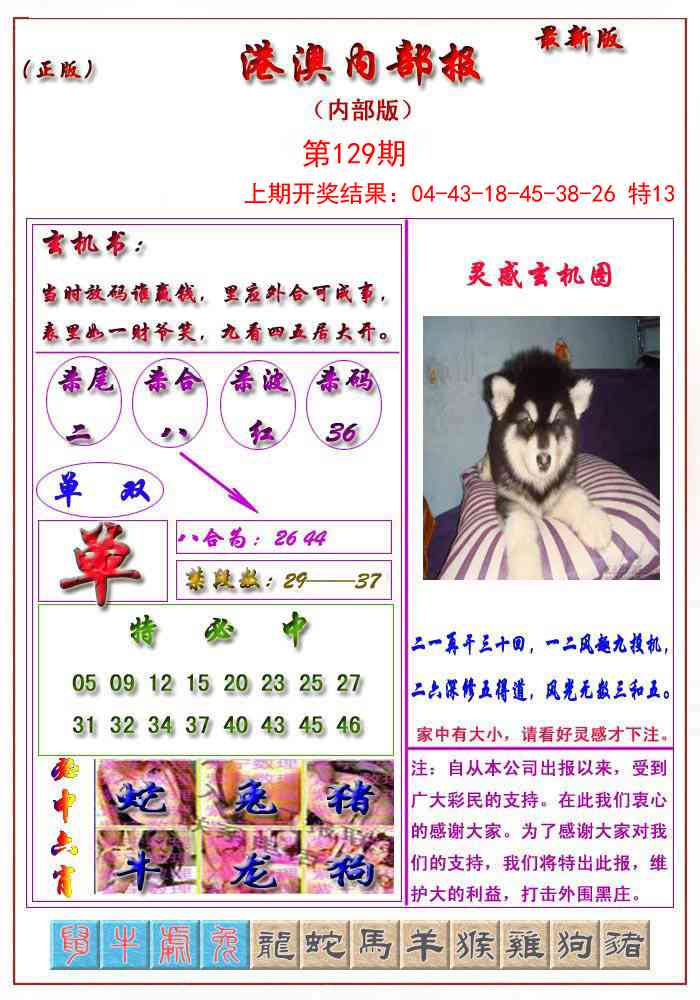 （正版）
港澳内部报
最新版
（内部版）
第129期
上期开奖结果：04-43-18-45-38-26 特13
玄机书：
当时放码谁赢钱，里应外合可成事，
表里如一财爷笑，九看四五居大开。
杀尾 杀合 杀波 杀码
二 八 红 36
单 双
单
八合为：26 44
禁段数：29——37
特 必 中
05 09 12 15 20 23 25 27
31 32 34 37 40 43 45 46
必中六肖
蛇 兔 猪
牛 龙 狗
灵感玄机图
二一再干三十回，一二风趣九投机，
二六深修五得道，风光无数三和五。
家中有大小，请看好灵感才下注。
注：自从本公司出报以来，受到
广大彩民的支持。在此我们衷心
的感谢大家。为了感谢大家对我
们的支持，我们将特出此报，维
护大的利益，打击外围黑庄。
鼠 牛 虎 兔 龍 蛇 馬 羊 猴 雞 狗 豬